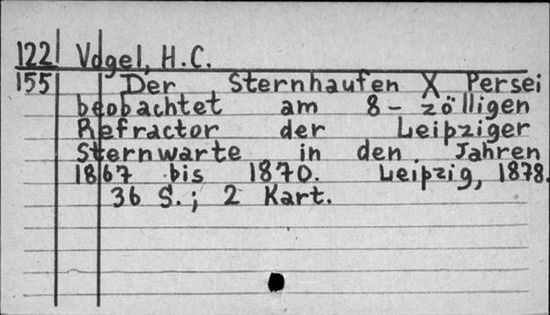 122 Vogel, H.C.
155 Der Sternhaufen X Persei
beobachtet am 8-zölligen
Refractor der Leipziger
Sternwarte in den Jahren
1867 bis 1870. Leipzig, 1878.
36 S.; 2 Kart.